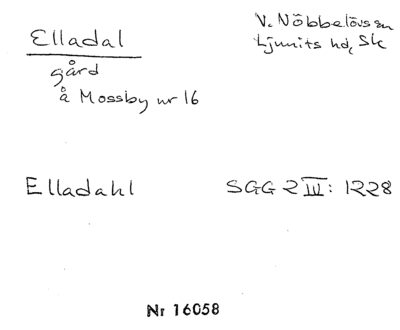 Elladal
V. Nöbbelövs sn
Ljunits hd, Sk
gård
å Mossby nr 16
Elladahl SGG 2 III: 1228
Nr 16058